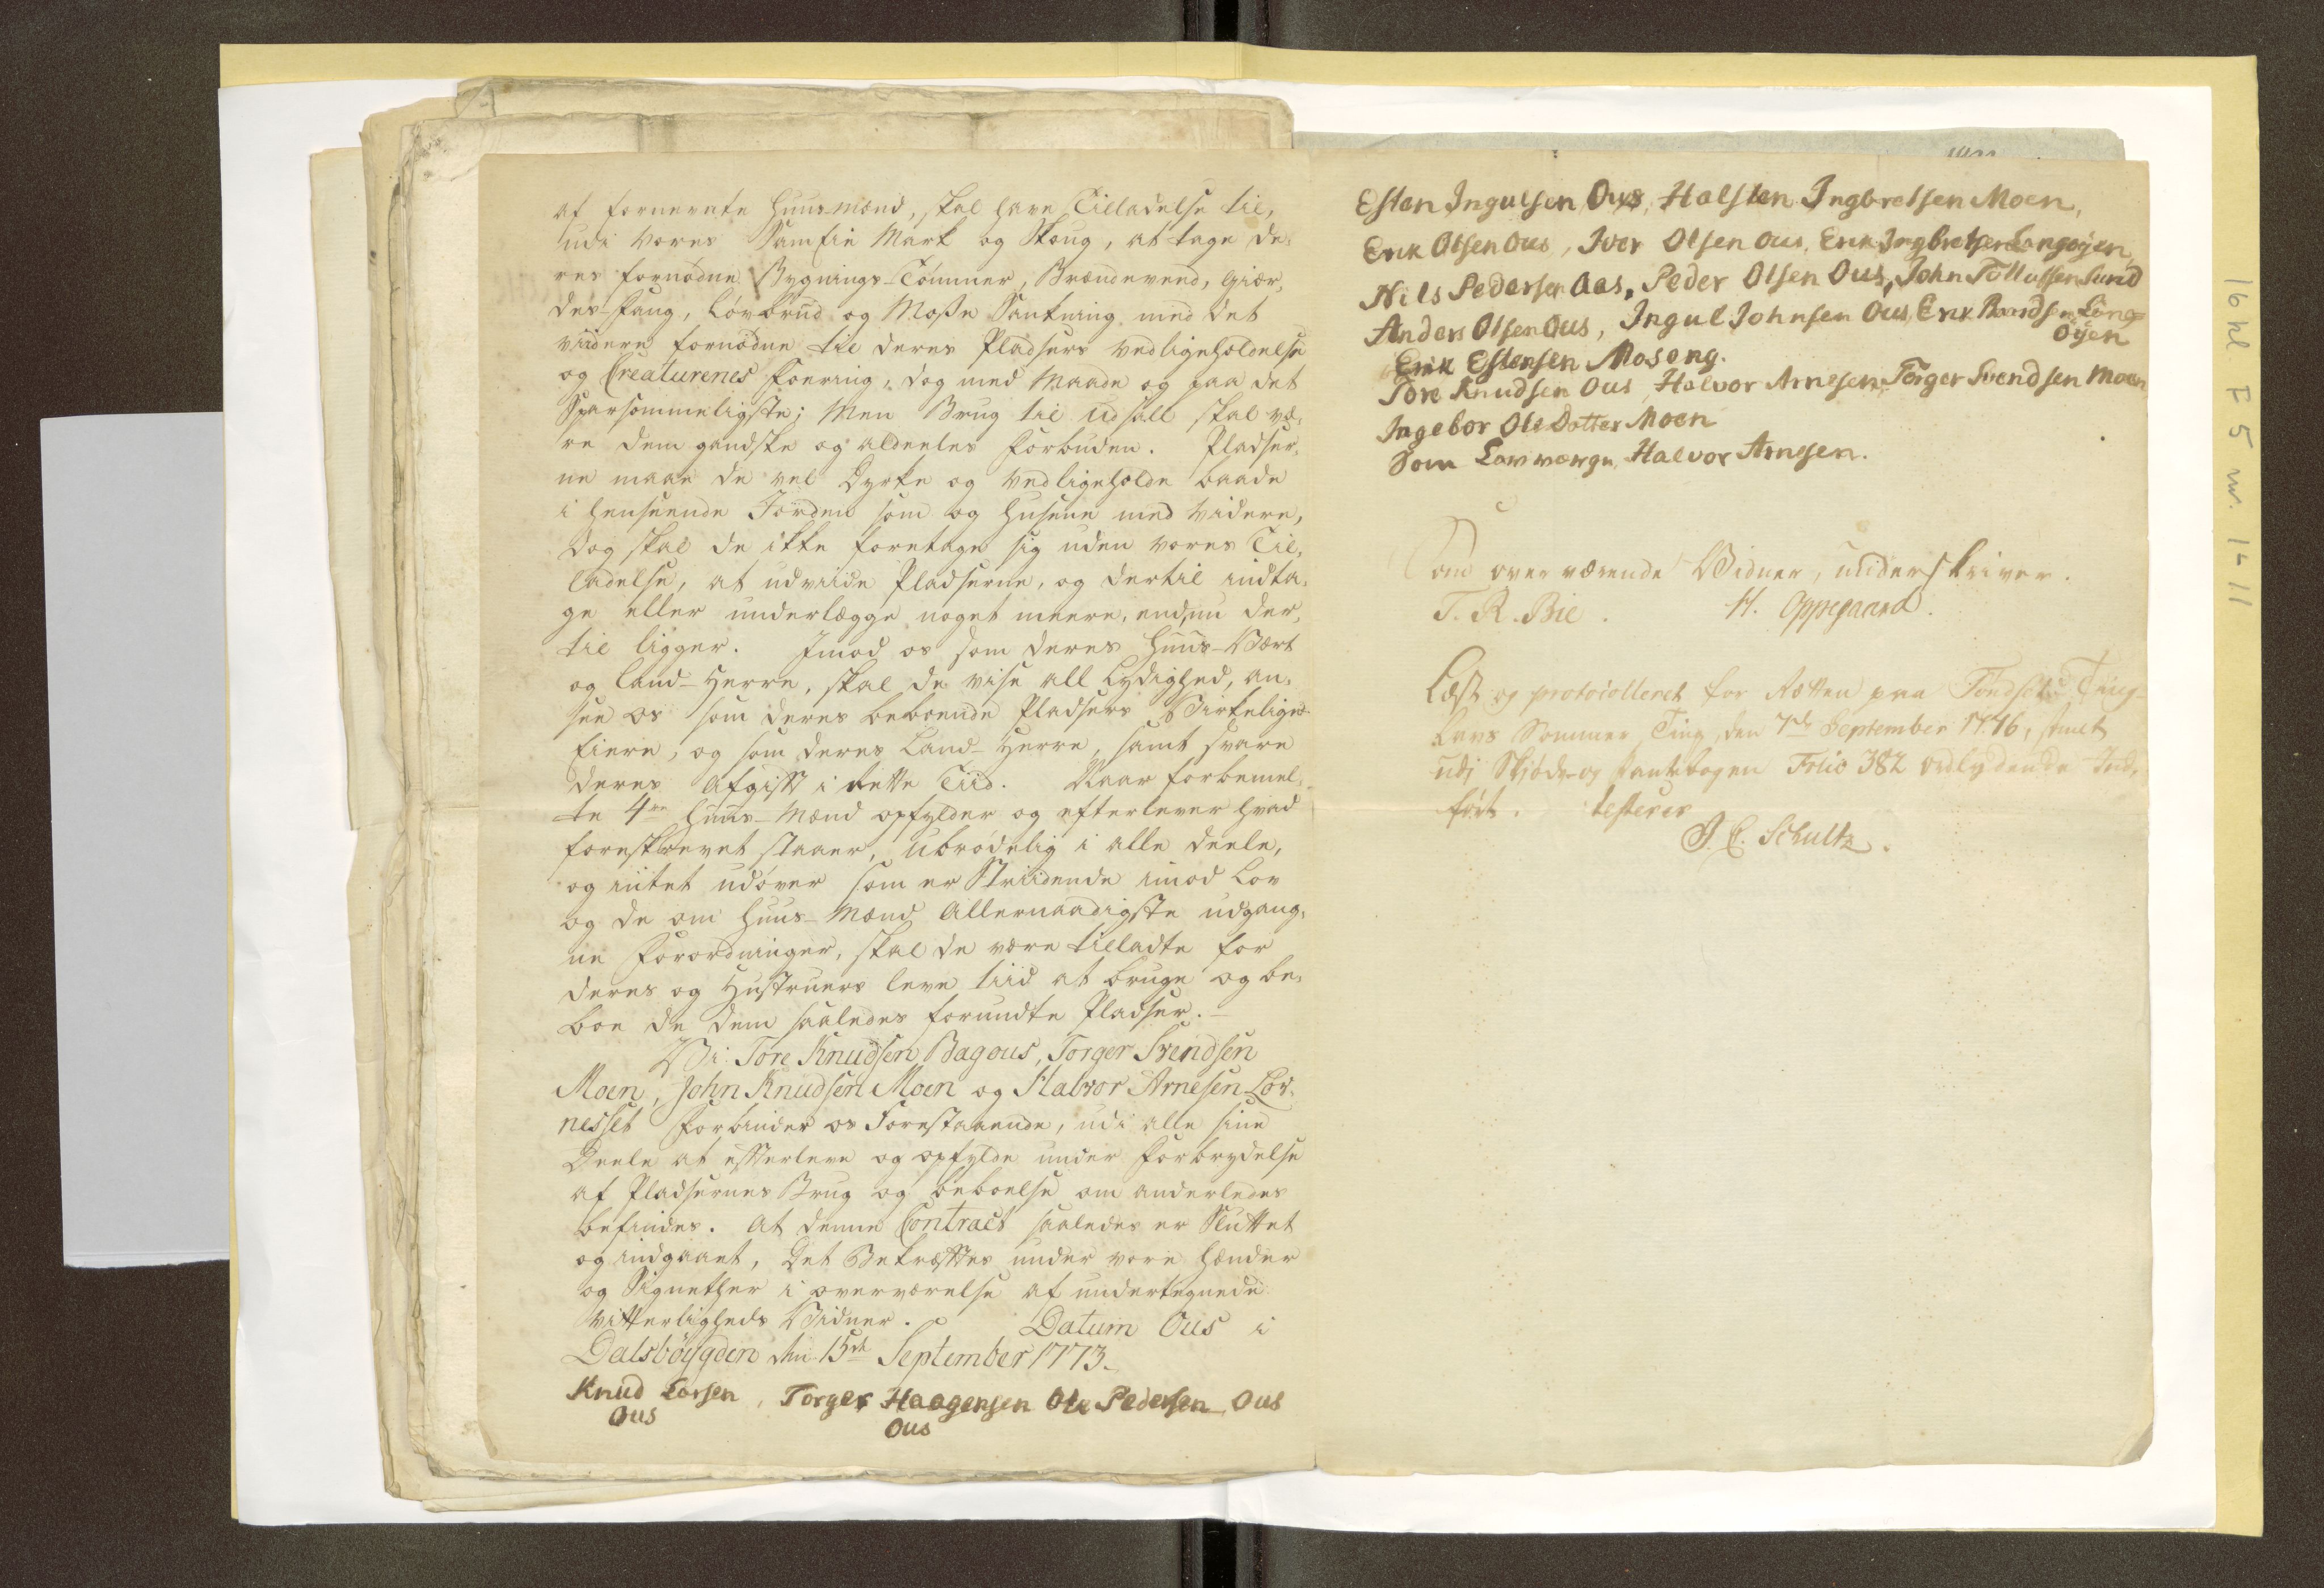 af fornevnte Huusmænd, skal have Tilladelse til,
udi vores Samfie Mark og Skoug, at tage de,
res fornødne Bygnings-Tømmer, Brændeveed, Giær,
des-Fang, Løvbrud og Moße Sankning med det
viidere fornødne til deres Pladsers vedligeholdelse
og Creaturenes Foering, dog med Maade og paa det
Sparsommeligste; Men Brug til udsall skal væ,
re dem gandske og aldeeles forbuden. Pladser,
ne maae de vel Dyrke og vedligeholde baade
i henseende Jorden som og Husene med videre,
dog skal de ikke foretage sig uden vores Til,
ladelse, at udviide Pladserne, og dertil indta,
ge eller underlægge noget meere, end nu der,
til ligger. Imod os som deres Huus-Vært
og Land-Herre, skal de vise all Lydighed, an,
see os som deres beboende Pladsers Virkelige
Eiere, og som deres Land-Herre, samt svare
deres Afgift i rette Tiid. Naar forbemel,
te 4re Huus-Mænd opfylder og efterlever hvad
foreskrevet staaer, ubrødelig i alle deele,
og intet udøver som er Striidende imod Lov
og de om Huus-Mænd Allernaadigste udgang,
ne Forordninger, skal de være tilladte for
deres og Hustruers leve tiid at bruge og be,
boe de dem saaledes forundte Pladser.
Vi: Tore Knudsen Bagous, Torger Svendsen
Moen, John Knudsen Moen og Halvor Arnesen Løv,
nesset forbinder os Forestaaende, udi alle sine
Deele at efterleve og opfylde under Forbrydelse
af Pladsernes Brug og beboelse om anderledes
befindes. At denne Contract saaledes er Sluttet
og indgaaet, Det Bekræftes under vore Hænder
og Signether i overværelse af undertegnede
Vitterligheds Vidner. Datum Ous i
Dalsbøygden den 15de September 1773.
Knud Larsen, Torger Haagensen Ole Pedersen Ous
Ous Ous
Esten Ingulsen Ous, Halsten Ingbretsen Moen,
Erik Olsen Ous, Iver Olsen Ous, Erik Ingbretsen Langøyen,
Nils Pedersen Aas, Peder Olsen Ous, John Tollefsen Sund
Anders Olsen Ous, Ingul Johnsen Ous, Erik Langs
øyen
Erik Estensen Moseng.
Tore Knudsen Ous, Halvor Arnesen, Torger Svendsen Moen,
Ingebor Ole Dotter Moen
Som Lavværge, Halvor Arnesen.
Som overværende Vidner, underskriver.
T. R. Bie. H. Oppegaard.
Læst og protocolleret for Retten paa Tøndset Ting-
Lavs Sommer Ting, den 7de September 1776, samt
udj Skjøde og Pantebogen Folio 382 ordlydende Ind,
ført. testerer
J. C. Schultz.
16 kl F 5 nr. 1-11